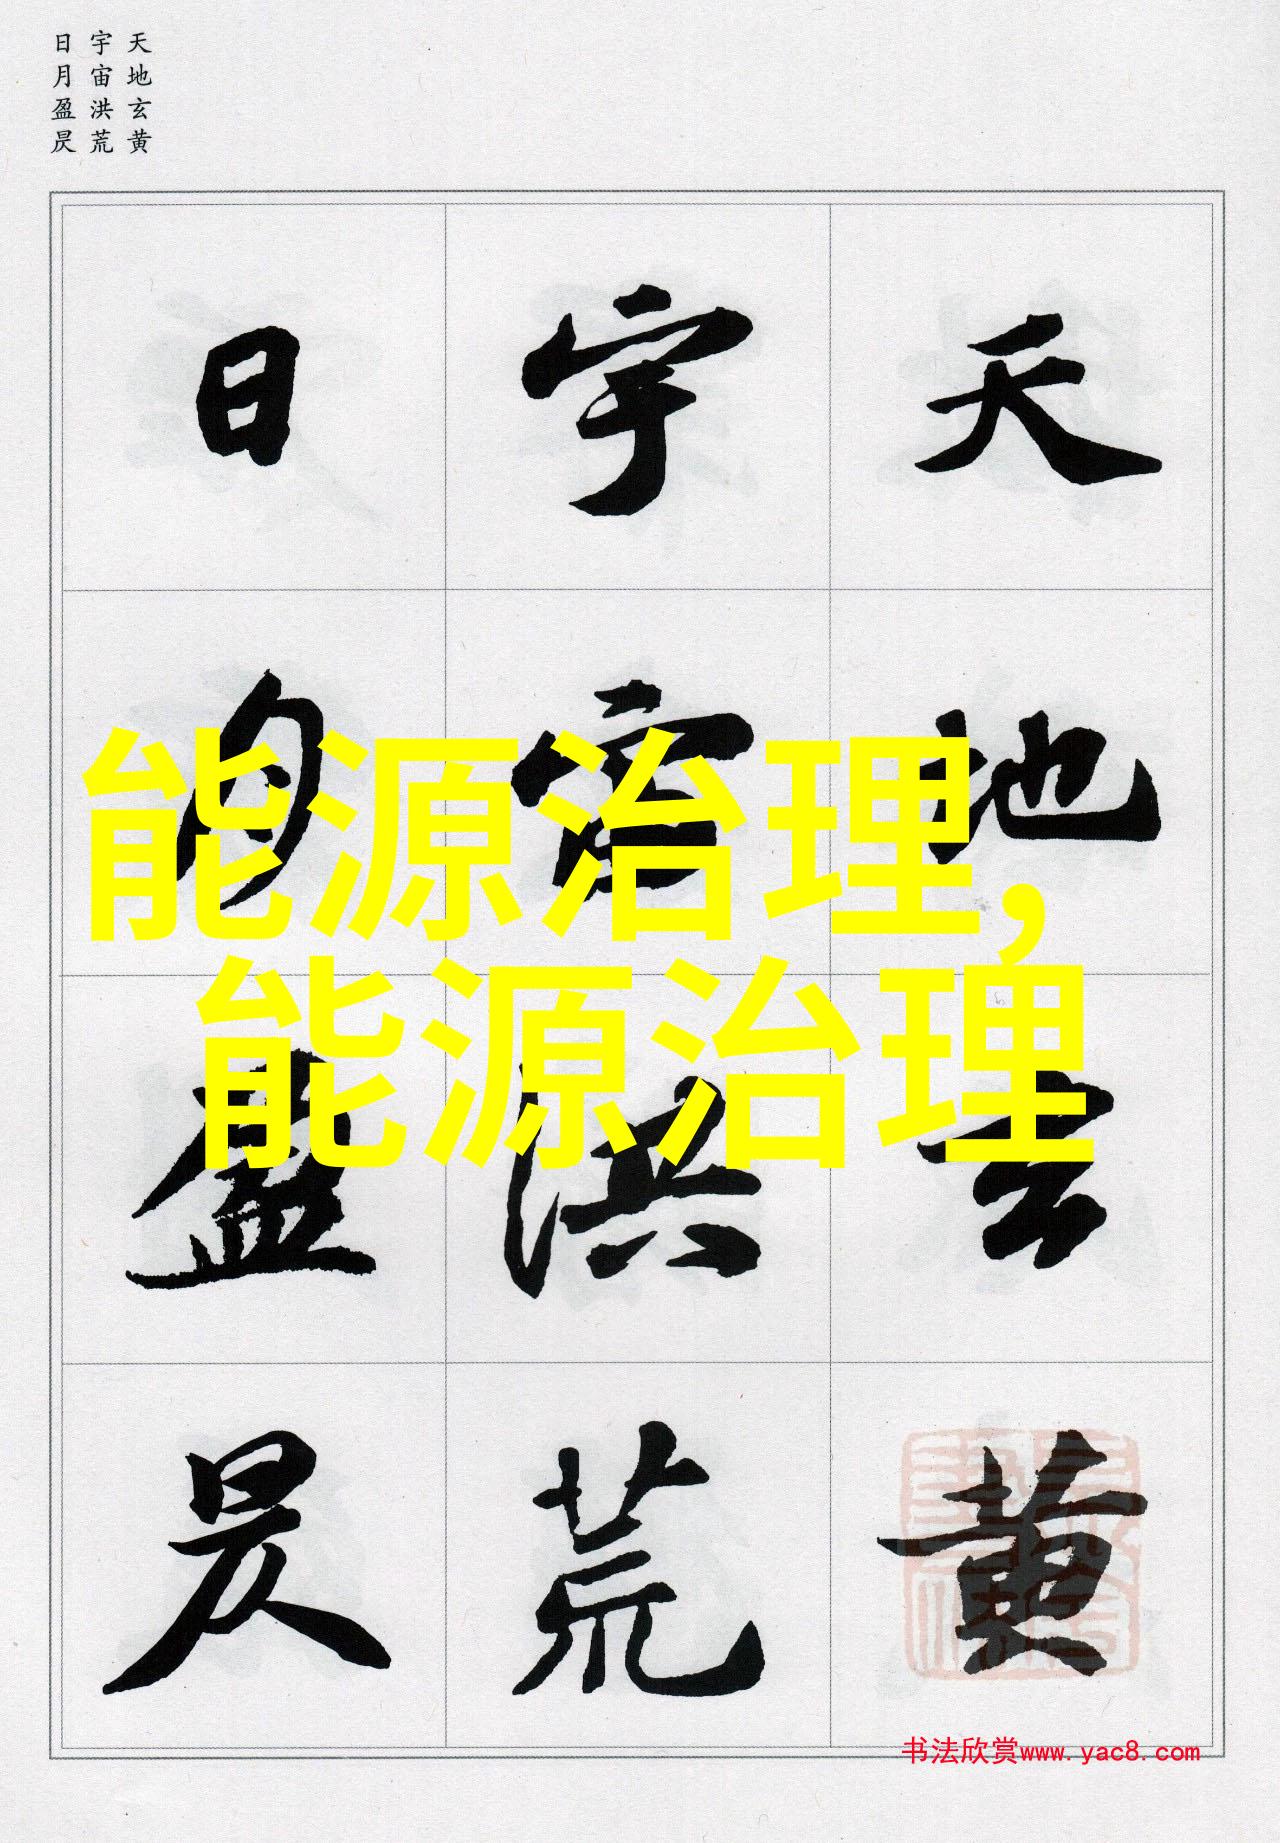 天地玄黄
宇宙洪荒
日月盈昃
天地玄黄
宇宙洪荒
日月盈昃
能源治理,
能源治理
书法欣赏www.yac8.com